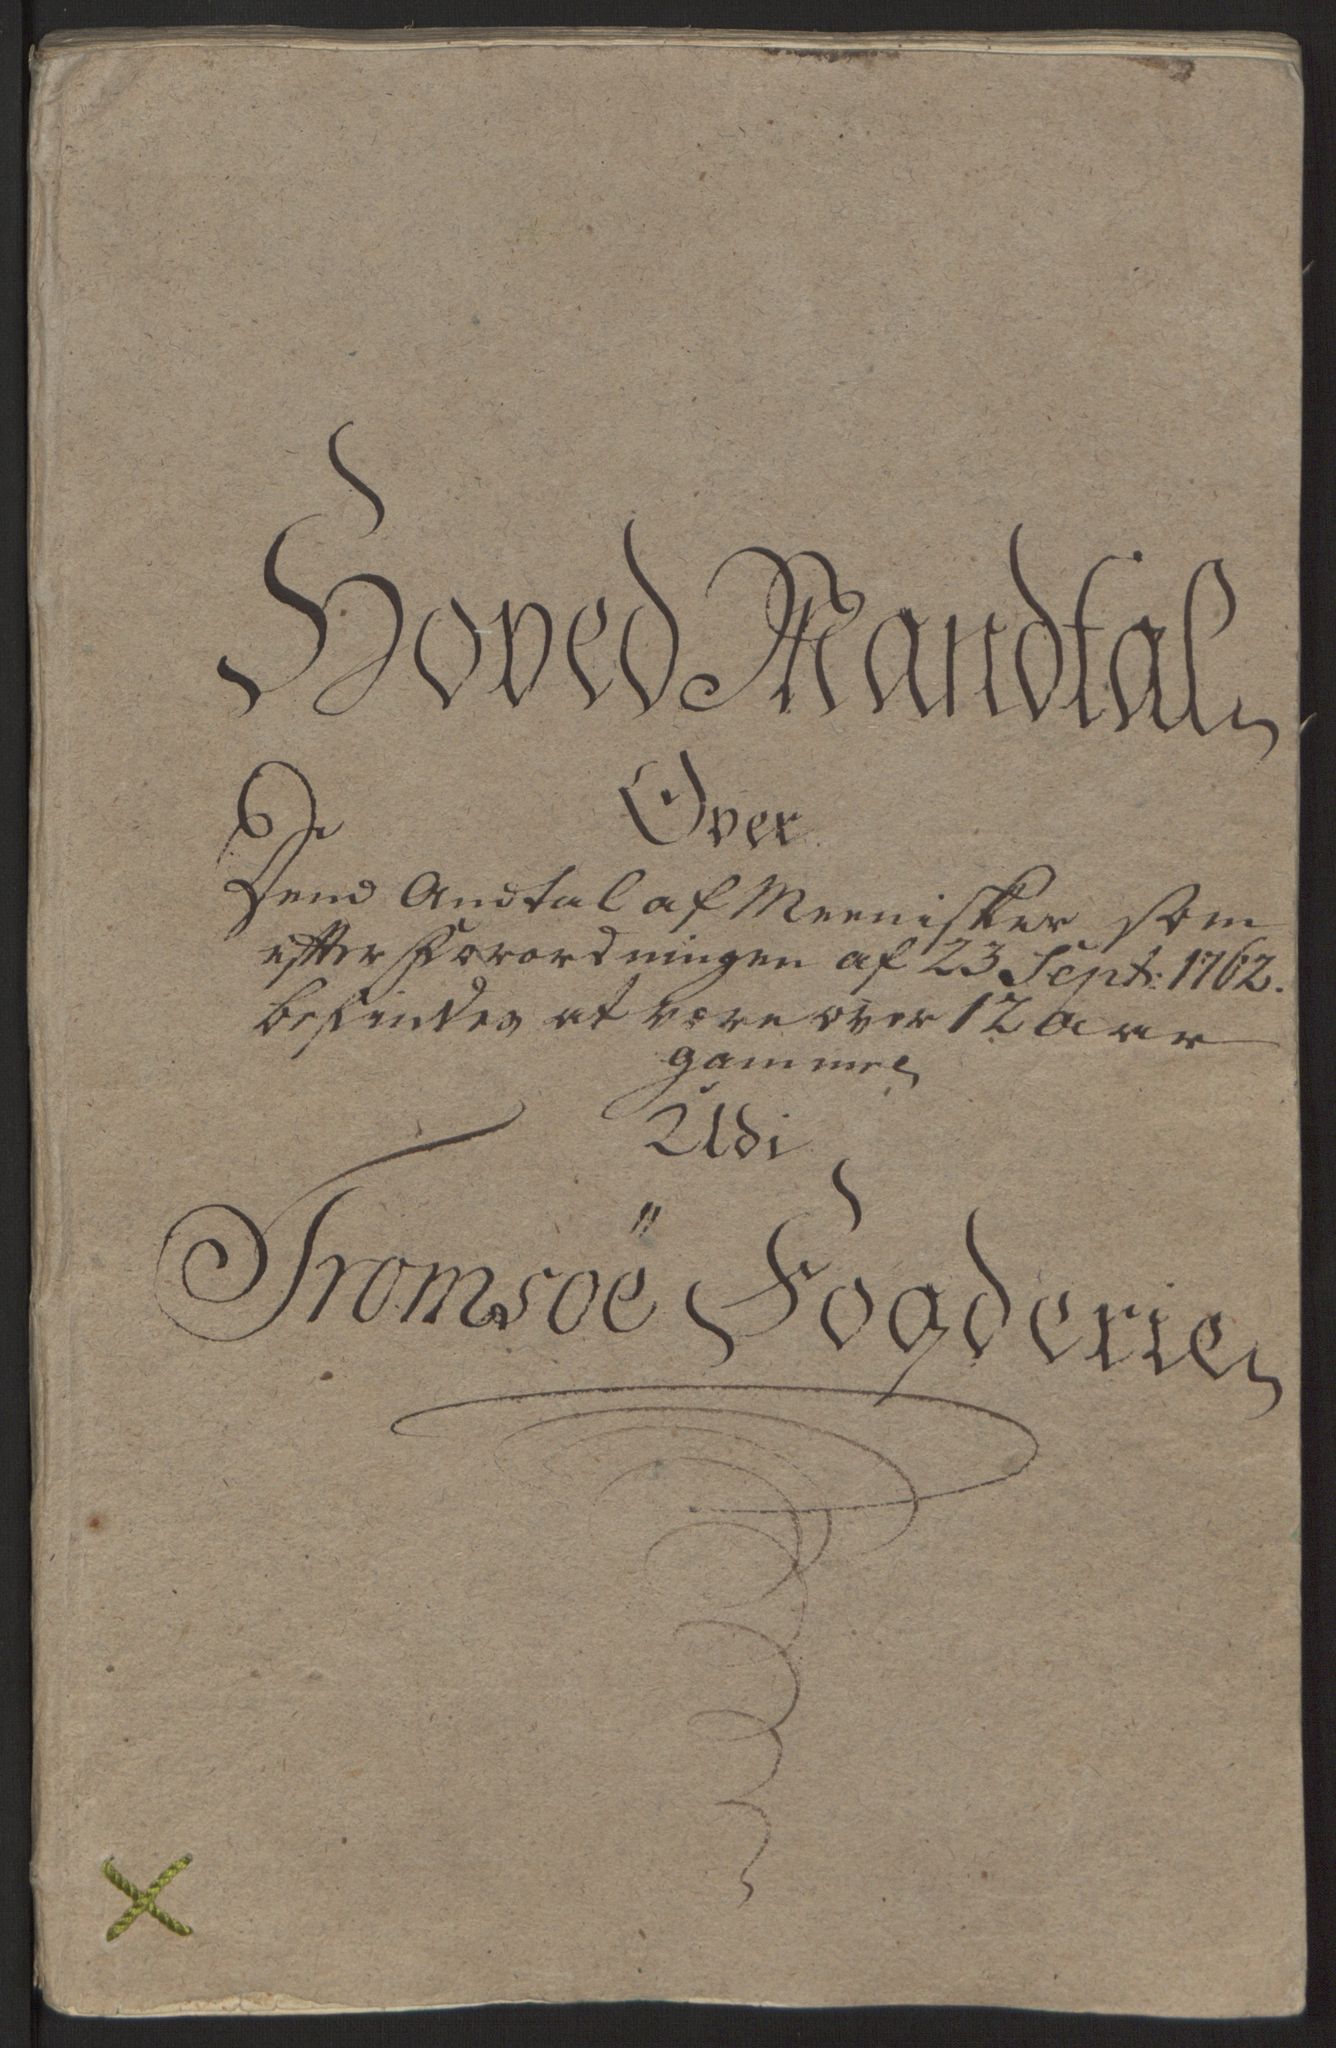 Hoved Mandtal
Over
Dend Andtal af Mennisker som
efter Forordningen af 23 Sept: 1762.
befindes at være over 12 Aar
gammel
Udi
Tromsöe Fogderie